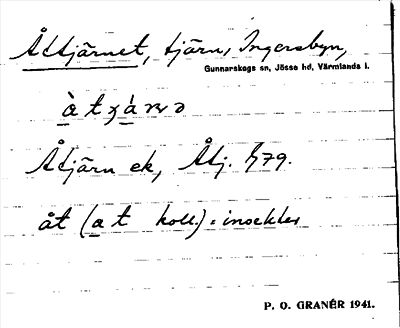 Åttjärnet, tjärn, Ingersbyn,
Gunnarskogs sn, Jösse hd, Värmlands l.
Åtjärn ek, Åtj. h 79.
åt (at koll.) = insekter
P. O. GRANÉR 1941.